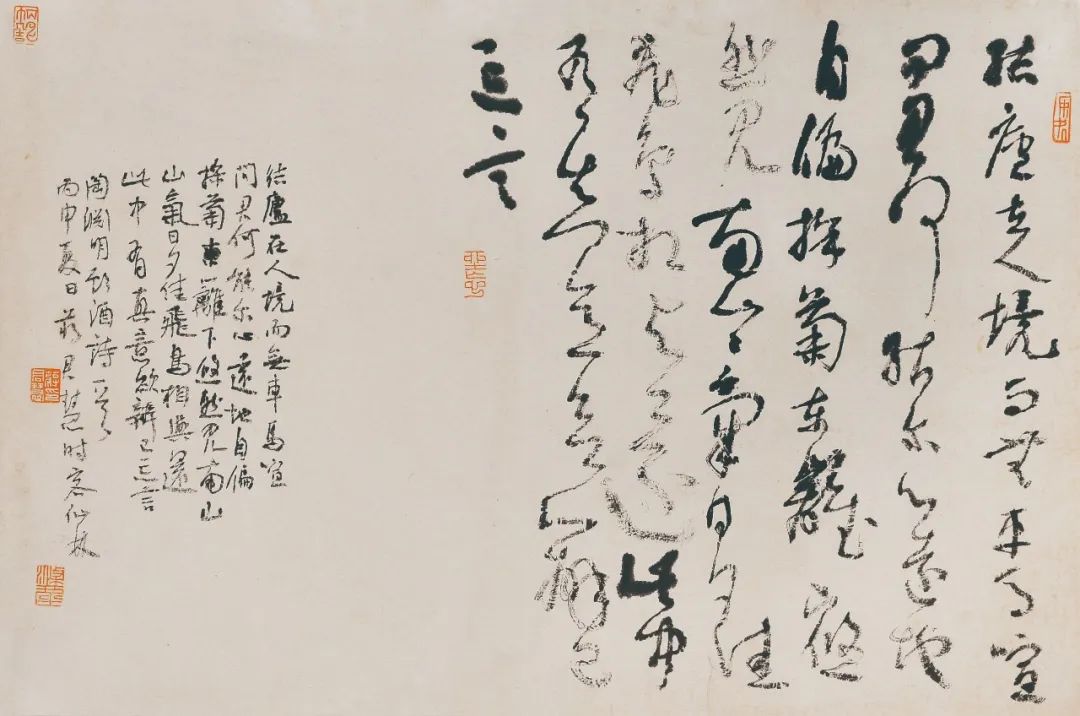 结庐在人境而无车马喧
问君何能尔心遠地
自偏採菊东籬悠
然见南山々氣日夕佳
飛鸟相与還此中
有真意欲辨已
忘言
结廬在人境而無車馬喧
問君何能尔心遠地自偏
採菊東籬下悠然见南山
山氣日夕佳飛鳥相與還
此中有真意欲辨已忘言
陶渊明飲酒詩一首
丙申夏日君慧时客仙林